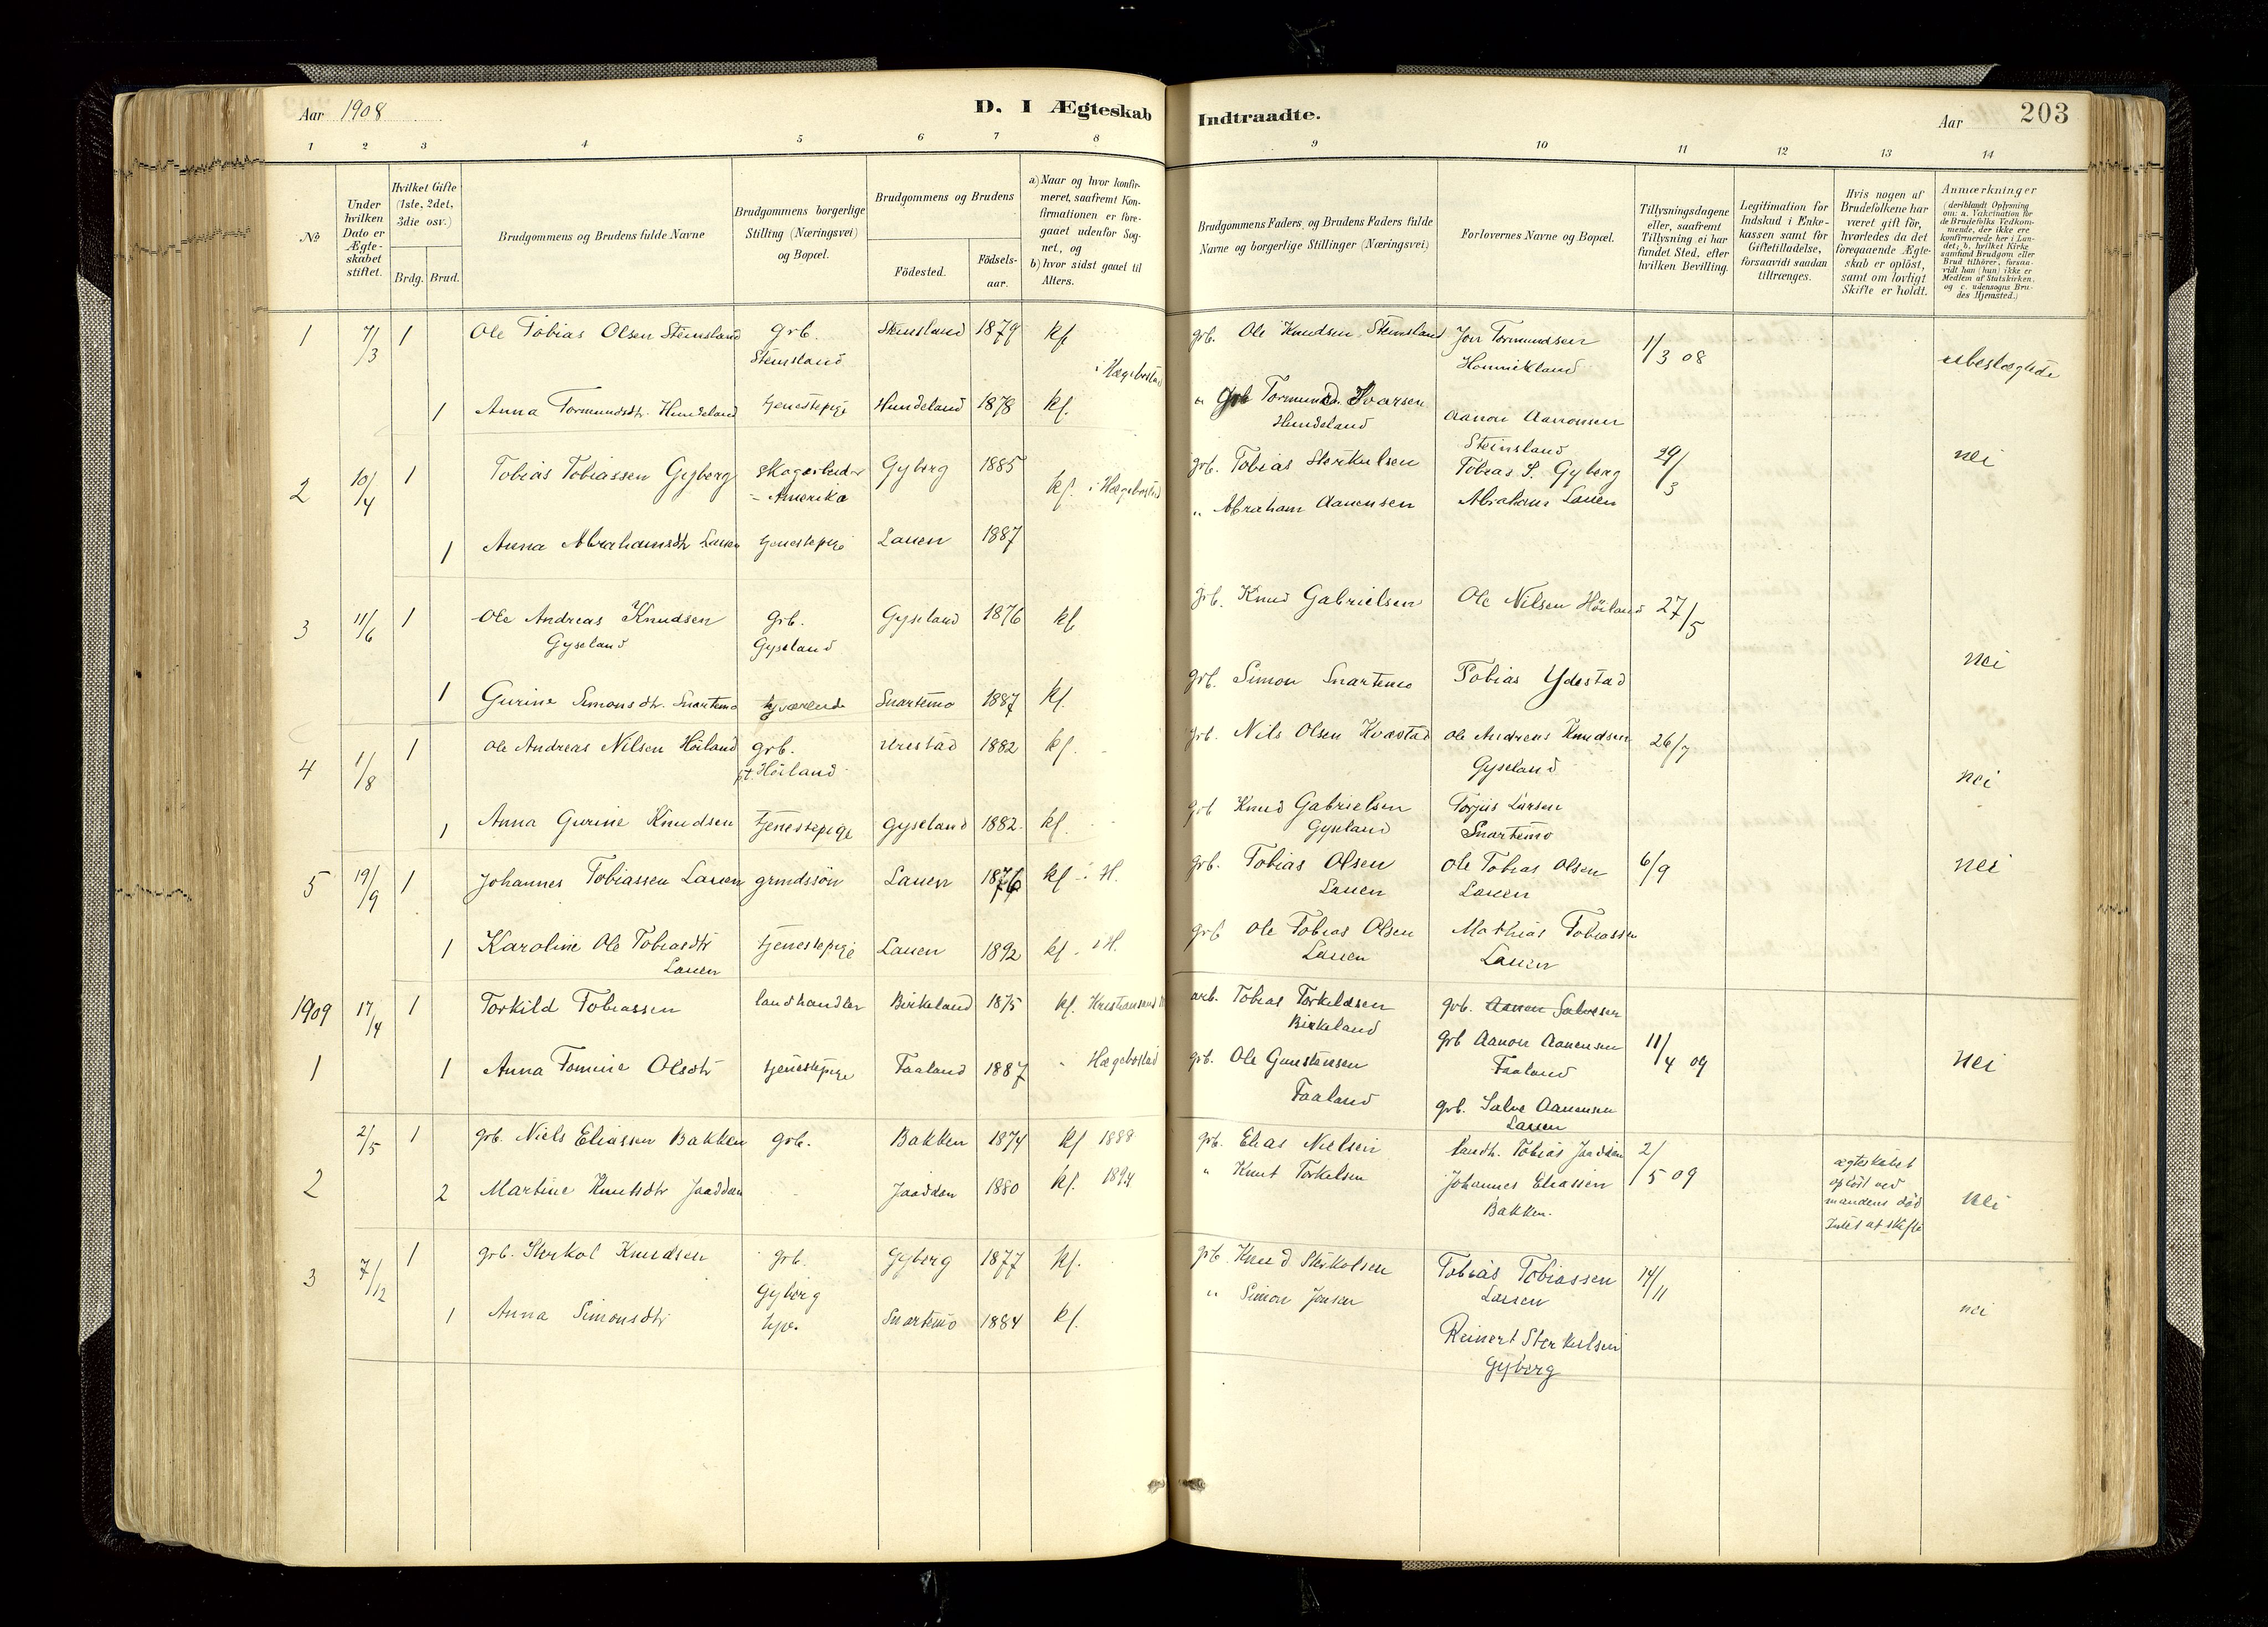 Aar 1908
D. I Ægteskab
Indtraadte.
Aar
203
1 2 3 4 5 6 7 8 9 10 11 12 13 14
No
Under hvilken Dato er Ægteskabet stiftet.
Hvilket Gifte (1ste, 2det, 3die osv.)
Brdg. Brud.
Brudgommens og Brudens fulde Navne
Brudgommens borgerlige Stilling (Næringsvei) og Bopæl.
Brudgommens og Brudens
Födested.
Födsels-aar.
a) Naar og hvor konfirmeret, saafremt Konfirmationen er foregaaet udenfor Sognet, og
b) hvor sidst gaaet til Alters.
Brudgommens Faders, og Brudens Faders fulde Navne og borgerlige Stillinger (Næringsvei)
Forlovernes Navne og Bopæl.
Tillysningsdagene eller, saafremt Tillysning ei har fundet Sted, efter hvilken Bevilling.
Legitimation for Indskud i Enkekassen samt for Giftetilladelse, forsaavidt saadan tiltrænges.
Hvis nogen af Brudefolkene har været gift för, hvorledes da det foregaaende Ægteskab er oplöst, samt om lovligt Skifte er holdt.
Anmærkninger (deriblandt Oplysning om: a. Vakcination for de Brudefolks Vedkommende, der ikke ere konfirmerede her i Landet; b. hvilket Kirkesamfund Brudgom eller Brud tilhörer, forsaavidt han (hun) ikke er Medlem af Statskirken, og c. udensogns Brudes Hjemsted.)
1 7/3 1 Ole Tobias Olsen Steinsland grb. Steinsland 1879 kf. grb. Ole Knudsen Steinsland Jon Tormundsen 1/3 08
Steinsland i Hægebostad Homnikland ubeslægtede
1 Anna Tormundsdtr. Hundeland tjenestepige Hundeland 1878 kf. " Grb Tormund Ivarsen Aanon Aanonsen
Hundeland Steinsland
2 10/4 1 Tobias Tobiassen Gyberg skogarbeider Gyberg 1885 kf. i Hægebostad grb. Tobias Sterkulsen Tobias S. Gyberg 29/3 nei
- Amerika " Abraham Aanensen Abraham Lauen
1 Anna Abrahamsdtr Lauen tjenestepige Lauen 1887
3 11/6 1 Ole Andreas Knudsen grb. Gyseland 1876 kf. grb. Knud Gabrielsen Ole Nilsen Höiland 27/5
Gyseland Gyseland nei
1 Gurine Simonsdtr. Snartemo Snartemo 1887 kf. grb. Simon Snartemo Tobias Ydestad
4 1/8 1 Ole Andreas Nilsen Höiland grb. Urestad 1882 kf. grb. Nils Olsen Ole Andreas Knudsen 26/7
pt. Höiland Gyseland nei
1 Anna Gurine Knudsen tjenestepige Gyseland 1882 kf. grb Knud Gabrielsen Torjus Larsen
Gyseland Snartemo
5 19/9 1 Johannes Tobiassen Lauen grmdssön Lauen 1876 kf - i H. grb. Tobias Olsen Ole Tobias Olsen 6/9 nei
Lauen Lauen
1 Karoline Ole Tobiasdtr tjenestepige Lauen 1892 kf - i H. grb Ole Tobias Olsen Mathias Tobiassen
Lauen Lauen Lauen
1909 17/4 1 Torkild Tobiassen landhandler Birkeland 1875 kf. Kristiansand arb. Tobias Torkildsen grb. Aanen Salvesen
Birkeland grb Aanon Aanensen 11/4 09
1 1 Anna Tomine Olsdtr tjenestepige Faaland 1887 " Hægebostad grb. Ole Gunstensen Faaland nei
Faaland grb. Salve Aanensen
Lauen
2 2/5 1 grb. Niels Eliassen Bakken grb. Bakken 1874 kf 1888 grb. Elias Nielsen landh. Tobias Jaadden 2/5 09 ægteskabet
2 Martine Knutsdtr Jaaddan Jaaddan 1880 kf. 1894 " Knut Torkelsen Johannes Eliassen oplöst ved
Bakken. mandens död nei
Intet at skifte
3 7/12 1 grb. Sterkol Knudsen grb. Gyberg 1877 kf. grb. Knud Sterkolsen Tobias Tobiassen 14/11
Gyberg Lauen
1 Anna Simonsdtr Snartemo 1884 kf. " Simon Jensen nei
Reinert Sterkulsen
Gyberg